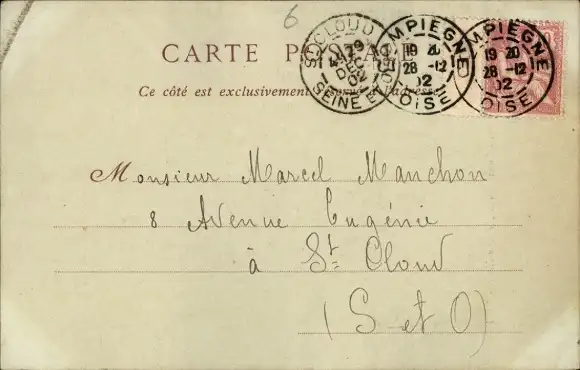 6
CARTE POSTALE
Ce côté est exclusivement réservé à l'adresse
ST CLOUD
29
DEC
02
SEINE ET OISE
COMPIEGNE
19 20
28 -12
02
OISE
COMPIEGNE
19 20
28 -12
02
OISE
Monsieur Marcel Manchon
8 Avenue Eugénie
à St Cloud
(S et O)